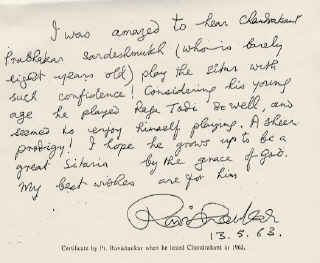 I was amazed to hear Chandrakant
Prabhakar Sardeshmukh (who is barely
eight years old) play the Sitar with
such confidence! Considering his young
age he played Raga Todi so well, and
seemed to enjoy himself playing. A sheer
prodigy! I hope he grows up to be a
great Sitarist by the grace of God.
My best wishes are for him
Ravi Shankar
13.5.63.
Certificate by Pt. Ravishankar when he heard Chandrakant in 1963.